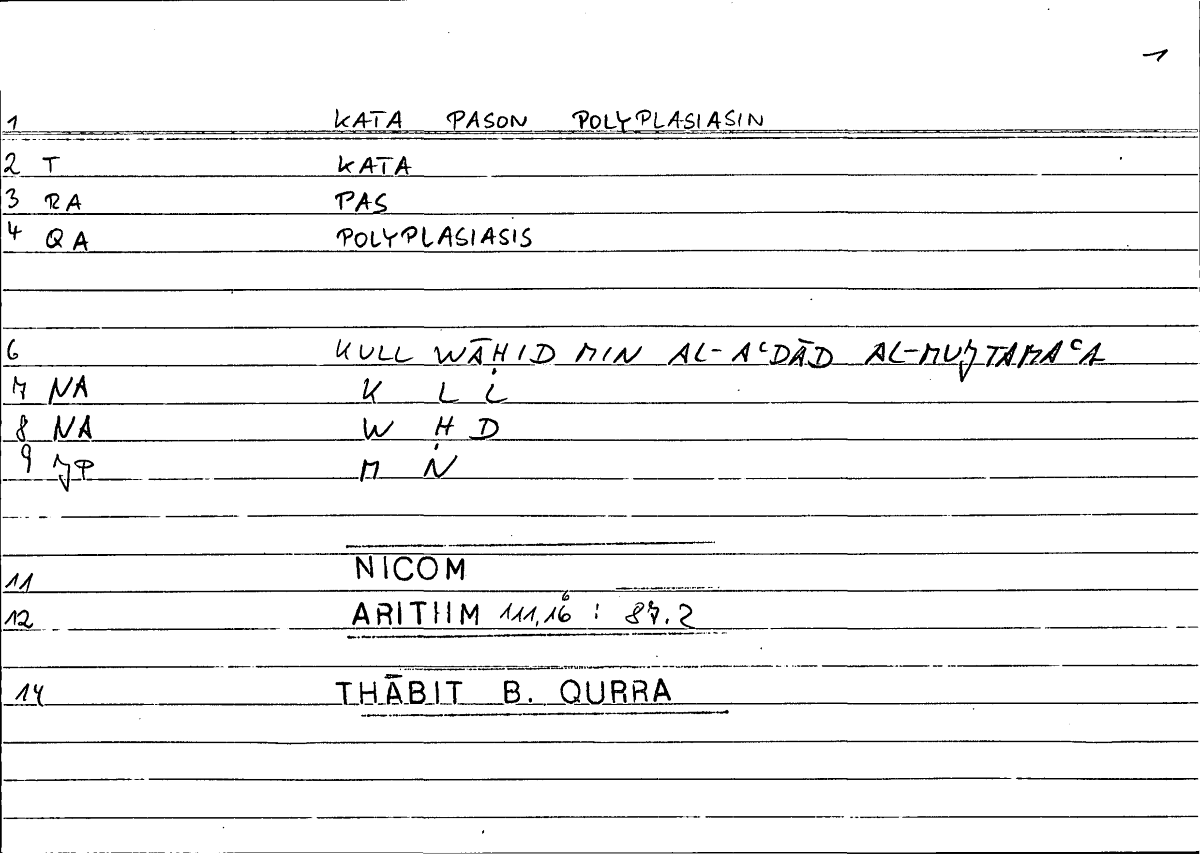 1
1 KATA PASON POLYPLASIASIN
2 T KATA
3 RA PAS
4 QA POLYPLASIASIS
6 KULL WĀḤID MIN AL-AᶜDĀD AL-MUJTAMAᶜA
7 NA K L L̇
8 NA W Ḥ D
9 JP M Ṅ
11 NICOM
12 ARITHM 111,16⁶ : 87.2
14 THĀBIT B. QURRA